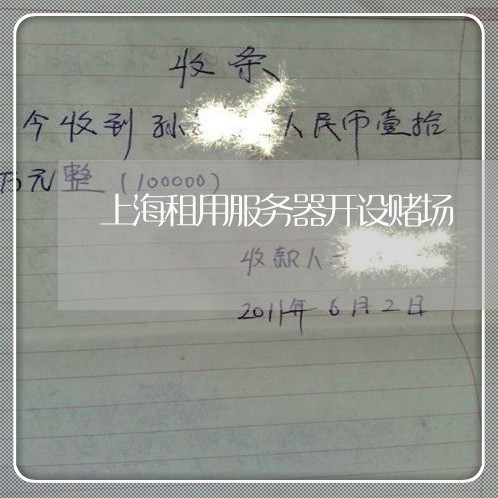 收条
今收到孙 人民币壹拾
万元整（100000）
上海租用服务器开设赌场
收款人
2011年6月2日